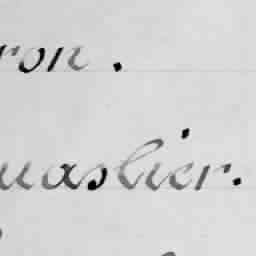 ron.
uaslier.